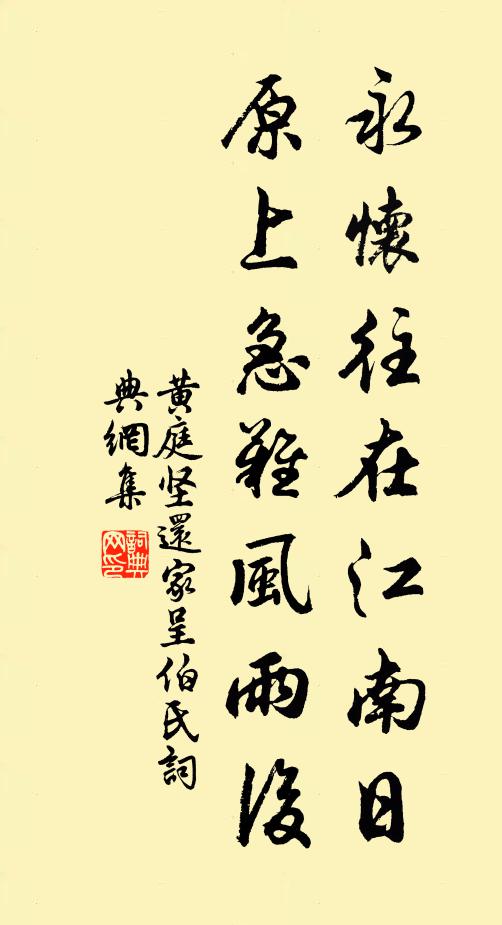 永懷往在江南日
原上急難風雨後
黄庭坚還家呈伯氏詞
典網集
詞典
网印